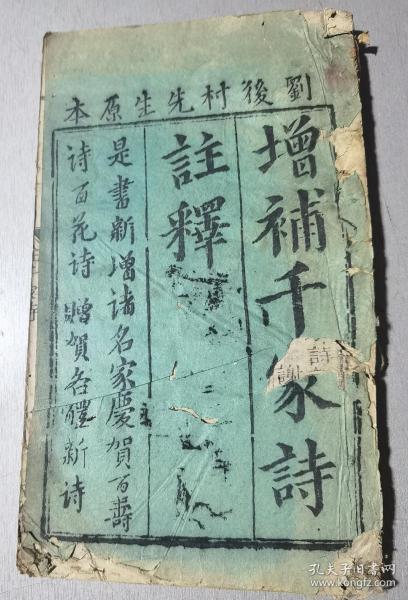 劉後村先生原本
增補千家詩
註釋
是書新增諸名家慶賀百壽
诗百花诗贈賀各體新诗
詩
謝
孔夫子旧书网
www.kongfz.com